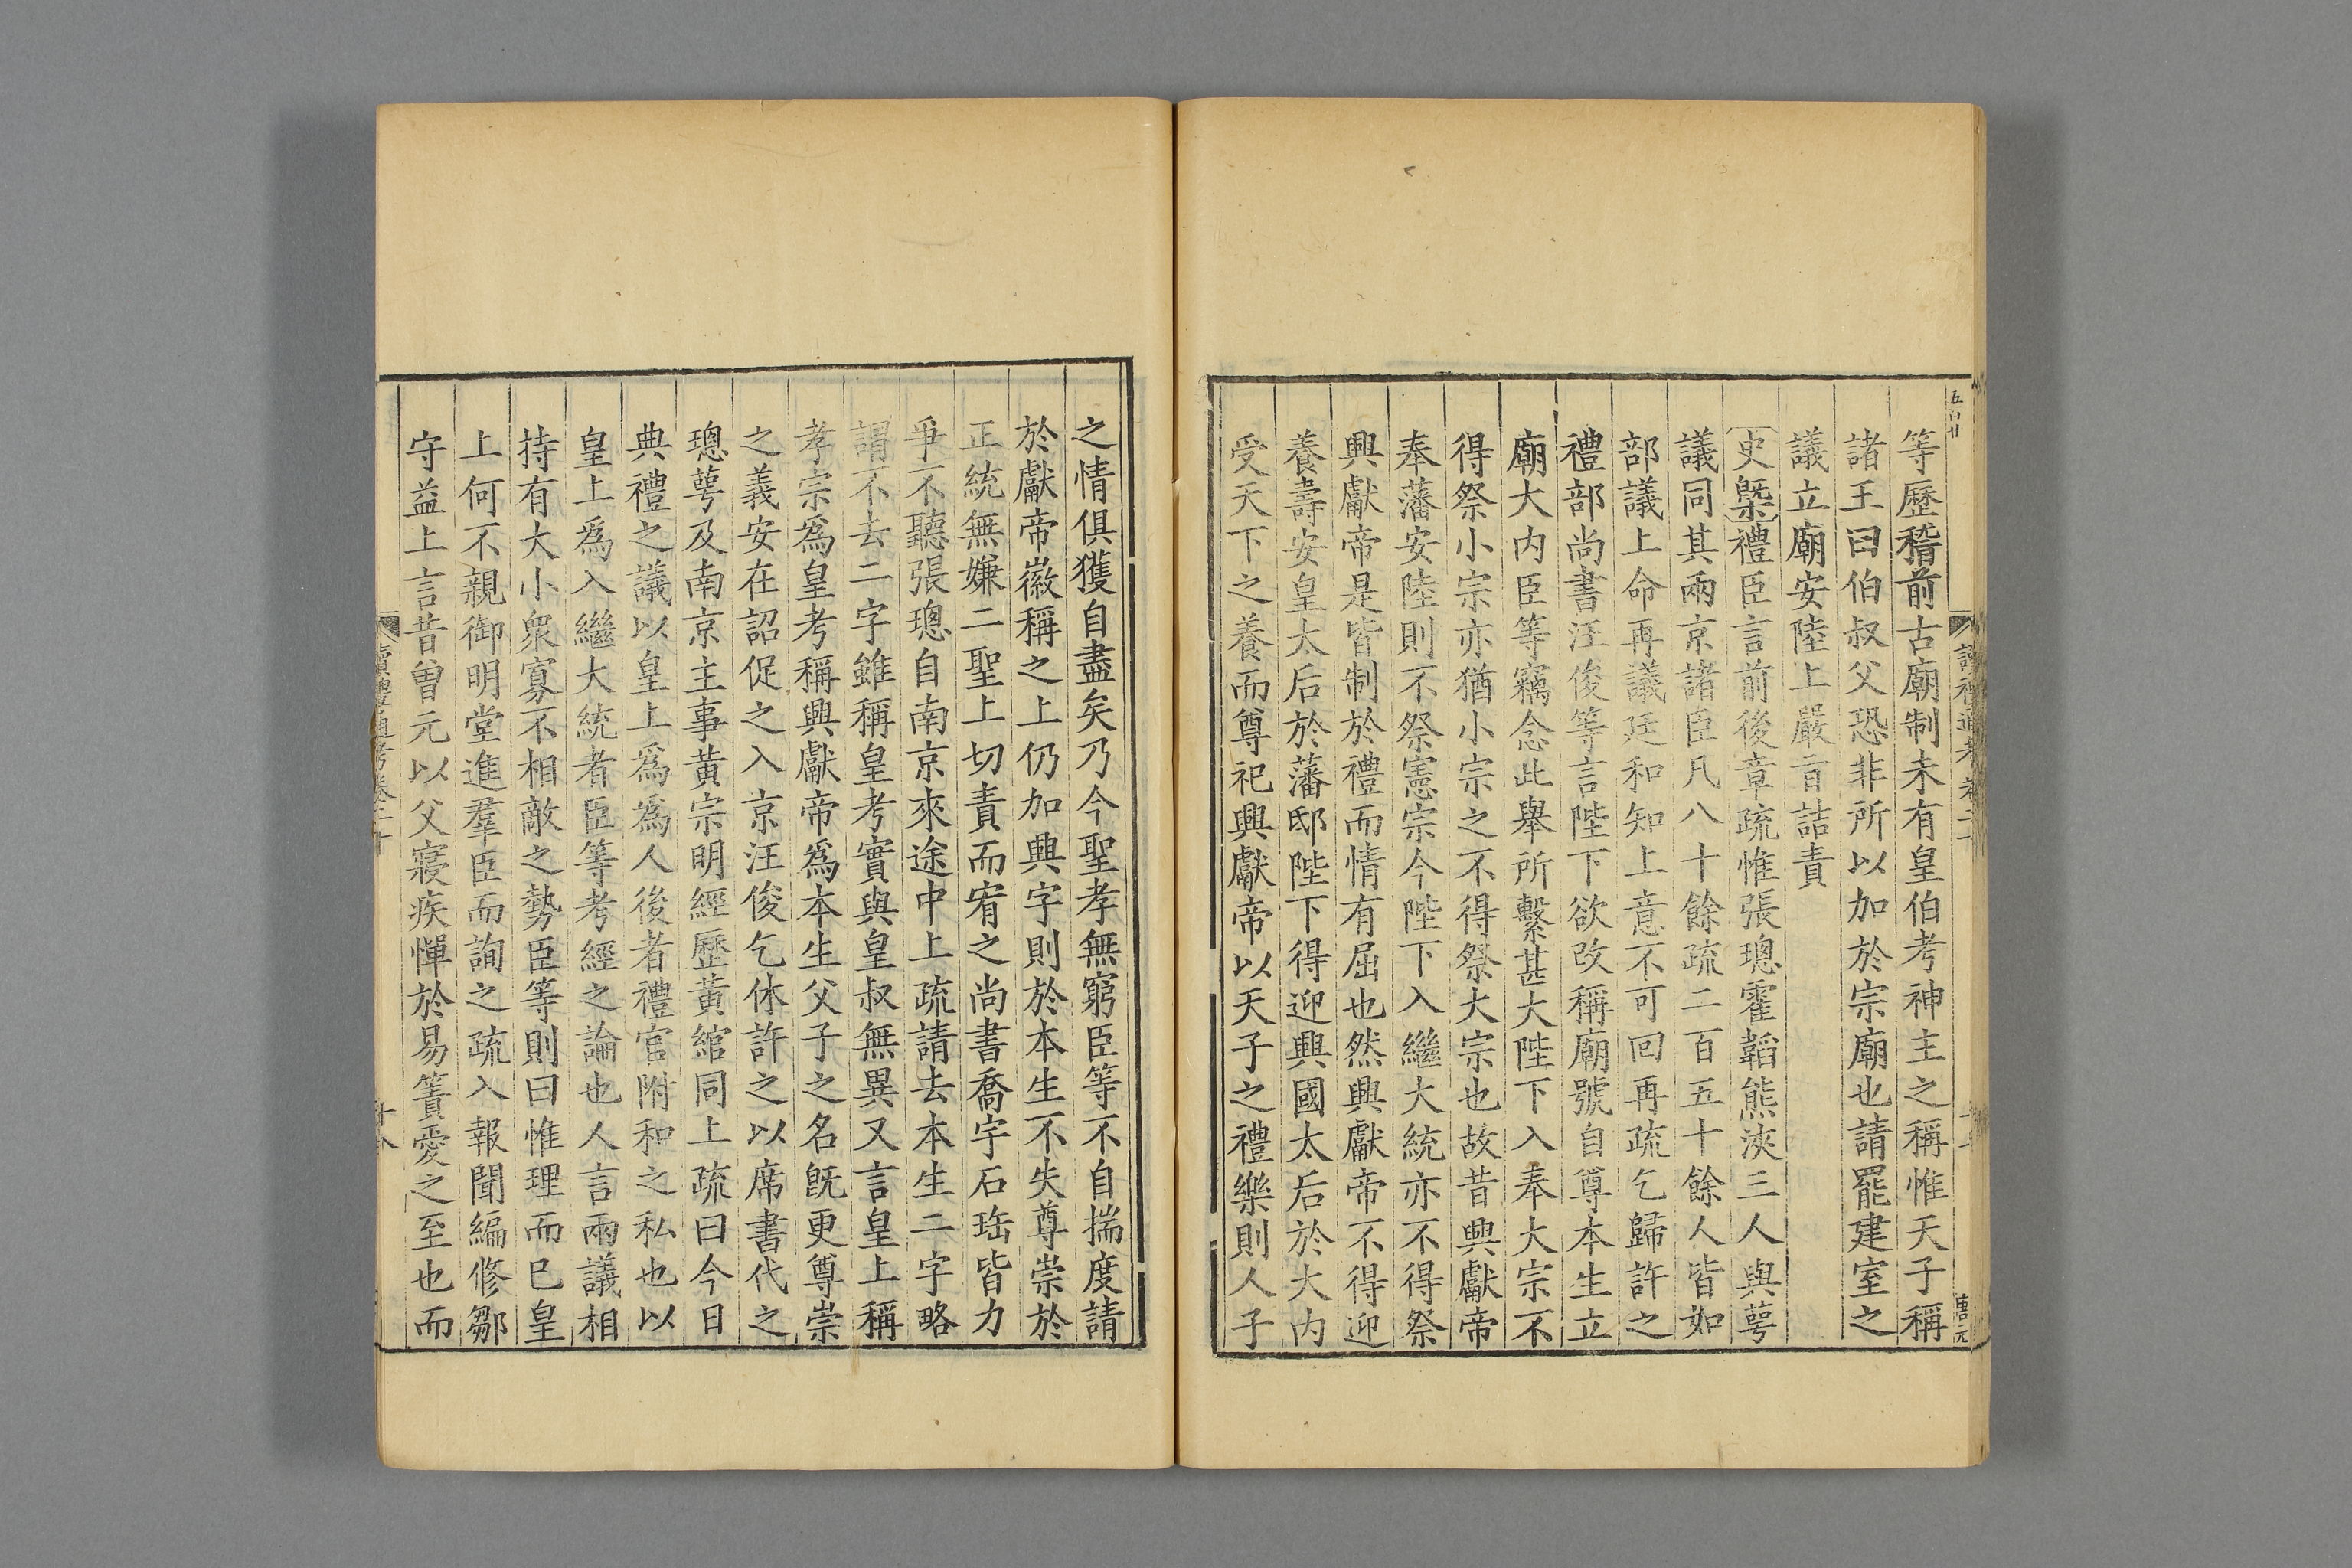 等歷稽前古廟制未有皇伯考神主之稱惟天子稱
諸王曰伯叔父恐非所以加於宗廟也請罷建室之
議立廟安陸上嚴旨詰責
史槩禮臣言前後章疏惟張璁霍韜熊浹三人與萼
議同其兩京諸臣凡八十餘疏二百五十餘人皆如
部議上命再議廷和知上意不可回再疏乞歸許之
禮部尚書汪俊等言陛下欲改稱廟號自尊本生立
廟大內臣等竊念此舉所繫甚大陛下入奉大宗不
得祭小宗亦猶小宗之不得祭大宗也故昔興獻帝
奉藩安陸則不祭憲宗今陛下入繼大統亦不得祭
興獻帝是皆制於禮而情有屈也然興獻帝不得迎
養壽安皇太后於藩邸陛下得迎興國太后於大內
受天下之養而尊祀興獻帝以天子之禮樂則人子
之情俱獲自盡矣乃今聖孝無窮臣等不自揣度請
於獻帝徽稱之上仍加興字則於本生不失尊崇於
正統無嫌二聖上切責而宥之尚書喬宇石珤皆力
爭不聽張璁自南京來途中上疏請去本生二字略
謂不去二字雖稱皇考實與皇叔無異又言皇上稱
孝宗爲皇考稱興獻帝爲本生父子之名旣更尊崇
之義安在詔促之入京汪俊乞休許之以席書代之
璁萼及南京主事黃宗明經歷黃綰同上疏曰今日
典禮之議以皇上爲爲人後者禮官附和之私也以
皇上爲入繼大統者臣等考經之論也人言兩議相
持有大小衆寡不相敵之勢臣等則曰惟理而已皇
上何不親御明堂進羣臣而詢之疏入報聞編修鄒
守益上言昔曾元以父寢疾憚於易簀愛之至也而
讀禮通考卷二十